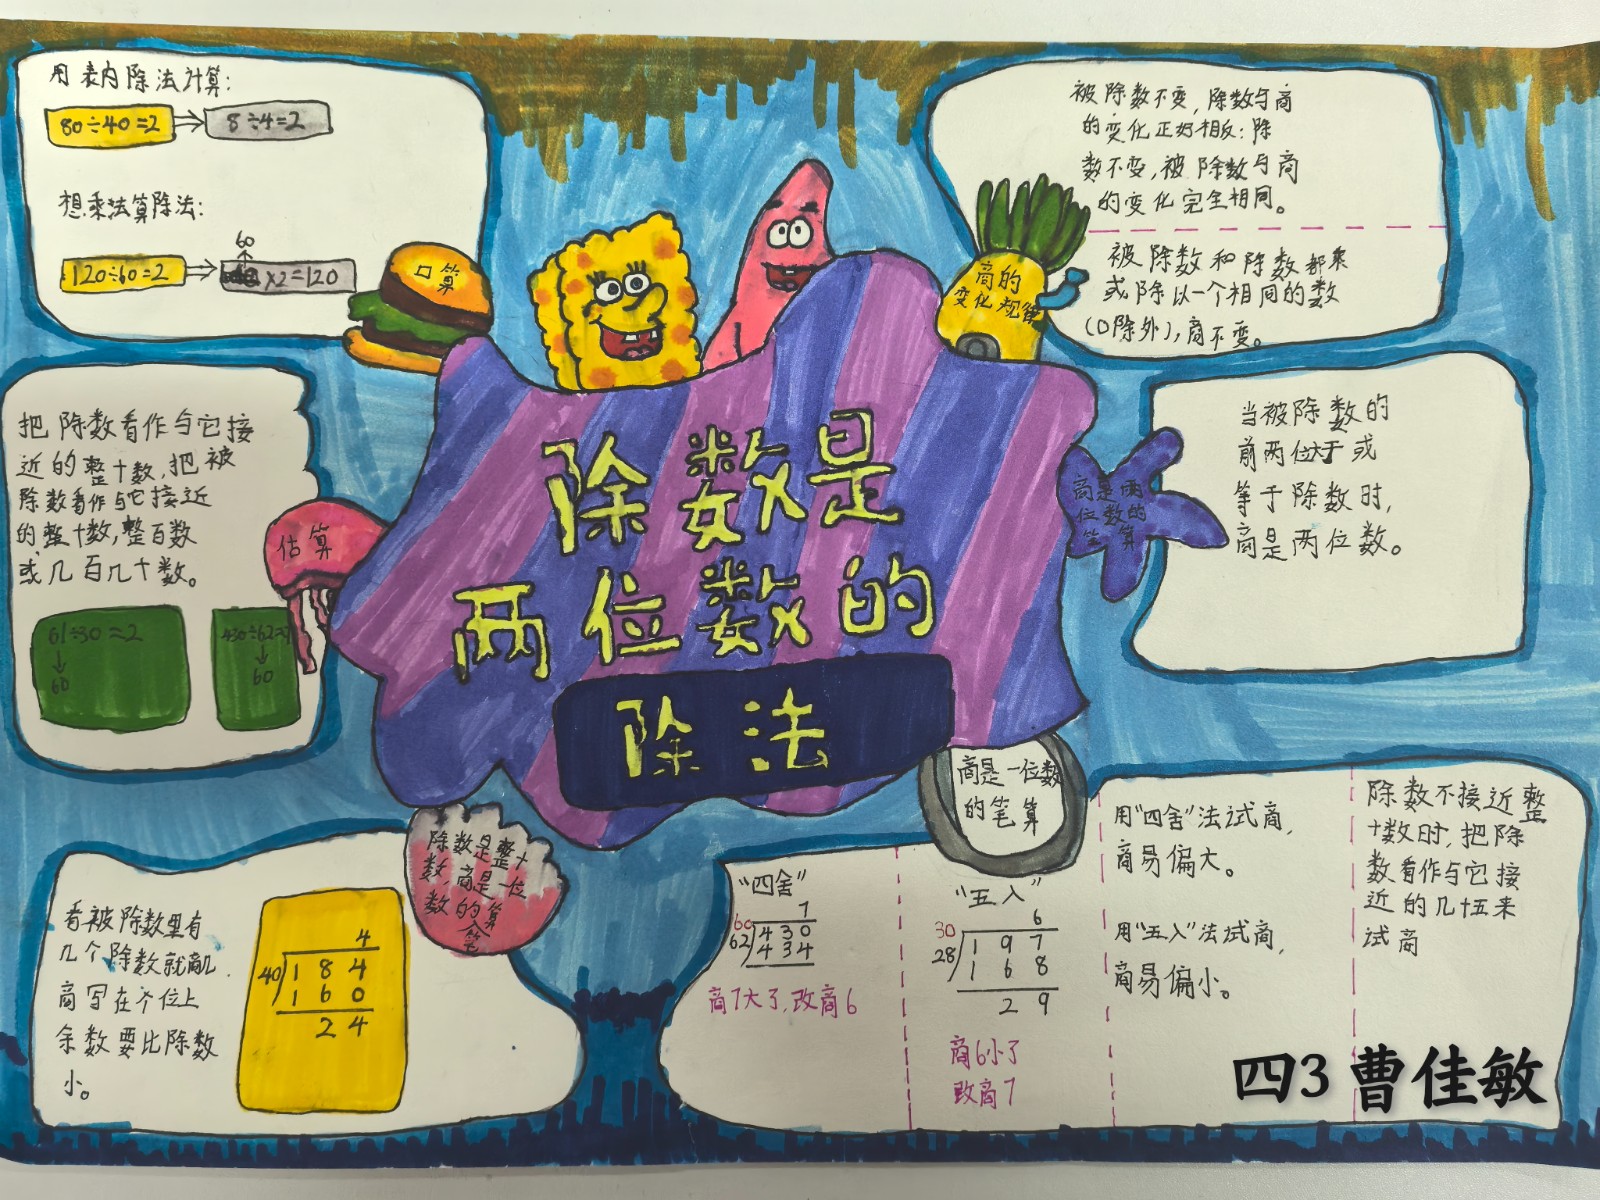 用表内除法计算:
80÷40=2
8÷4=2
想乘法算除法:
60
120÷60=2
×2=120
口算
把除数看作与它接
近的整十数,把被
除数看作与它接近
的整十数,整百数
或几百几十数。
估算
61÷30=2
60
430÷62≈7
60
看被除数里有
几个除数就商几.
商写在个位上
余数要比除数
小。
4
40 184
160
24
除数是整十
数,商是一位
数的
笔算
除数是
两位数的
除法
商的
变化规律
被除数不变,除数与商
的变化正好相反:除
数不变,被除数与商
的变化完全相同。
被除数和除数都乘
或除以一个相同的数
(0除外),商不变。
商是两
位数的
笔算
当被除数的
前两位大于或
等于除数时,
商是两位数。
商是一位数
的笔算
“四舍”
7
60
62 430
434
商7大了,改商6
“五入”
6
30
28 197
168
29
商6小了
改商7
用“四舍”法试商,
商易偏大。
用“五入”法试商,
商易偏小。
除数不接近整
十数时,把除
数看作与它接
近的几十五来
试商
四3 曹佳敏